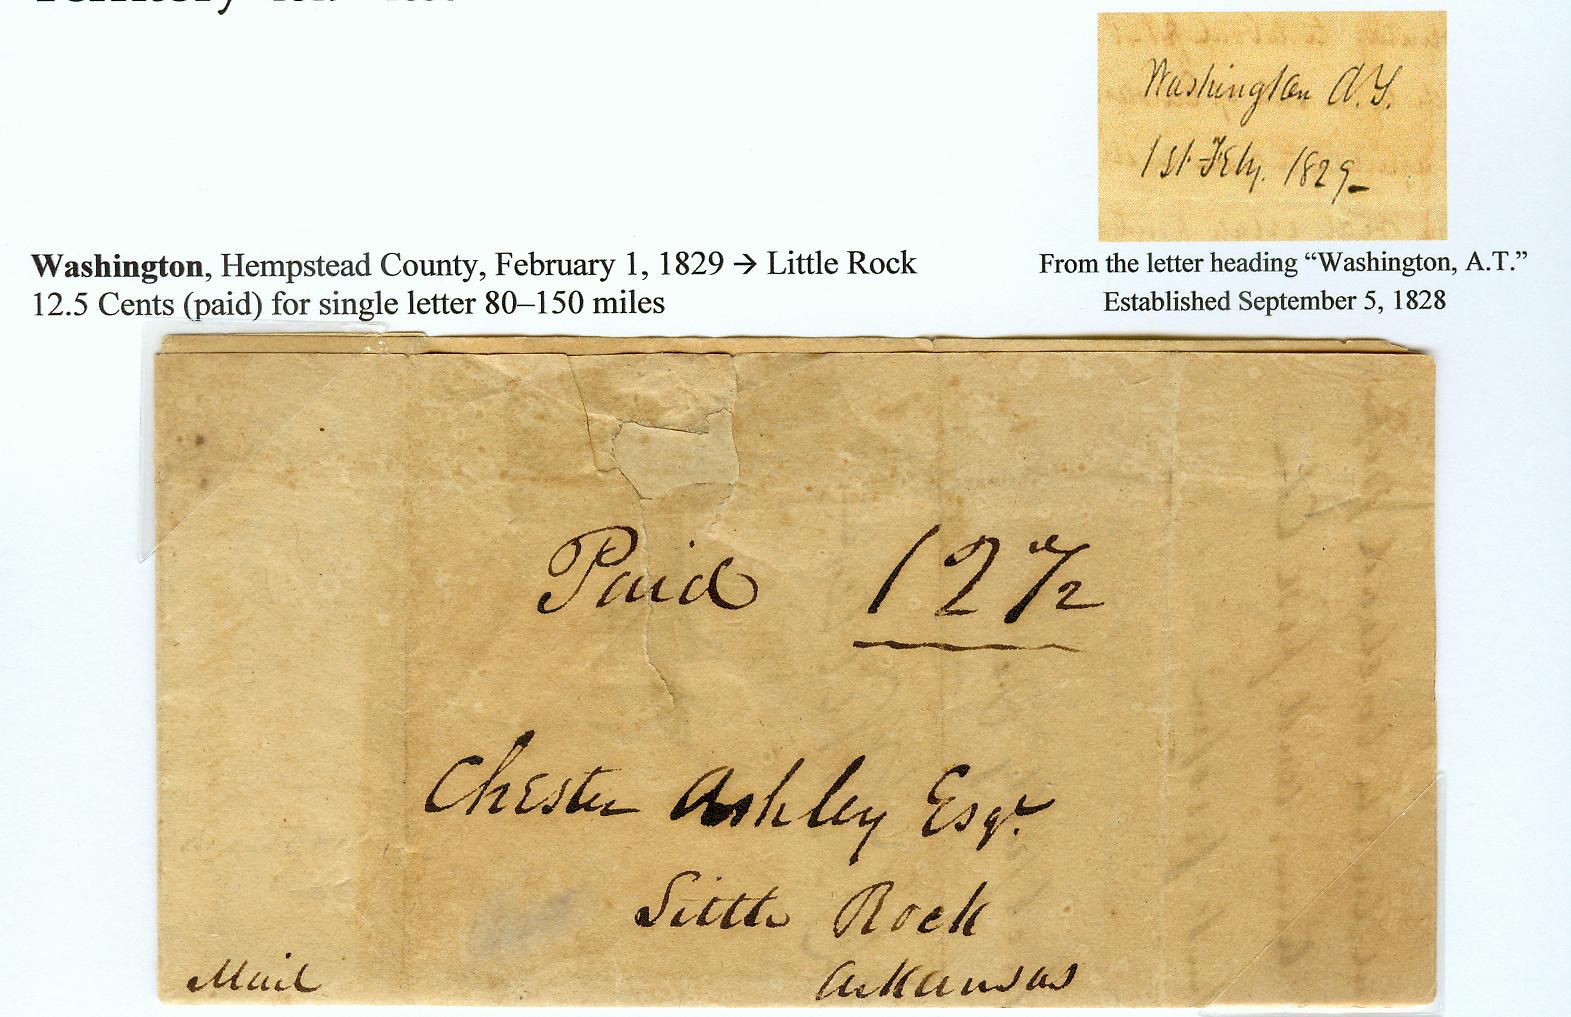 Washington A.T.
1st Feby. 1829
Washington, Hempstead County, February 1, 1829 → Little Rock
12.5 Cents (paid) for single letter 80–150 miles
From the letter heading “Washington, A.T.”
Established September 5, 1828
Paid 12½
Chester Ashley Esqr.
Little Rock
Mail Arkansas